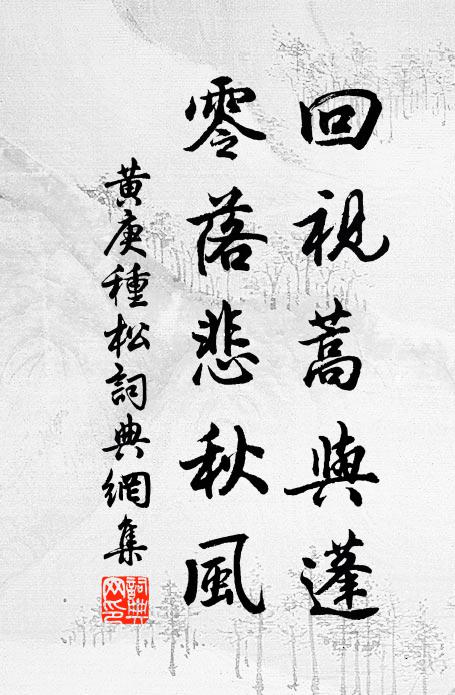 回視蒿與蓬
零落悲秋風
黄庚種松詞典網集
詞典網印